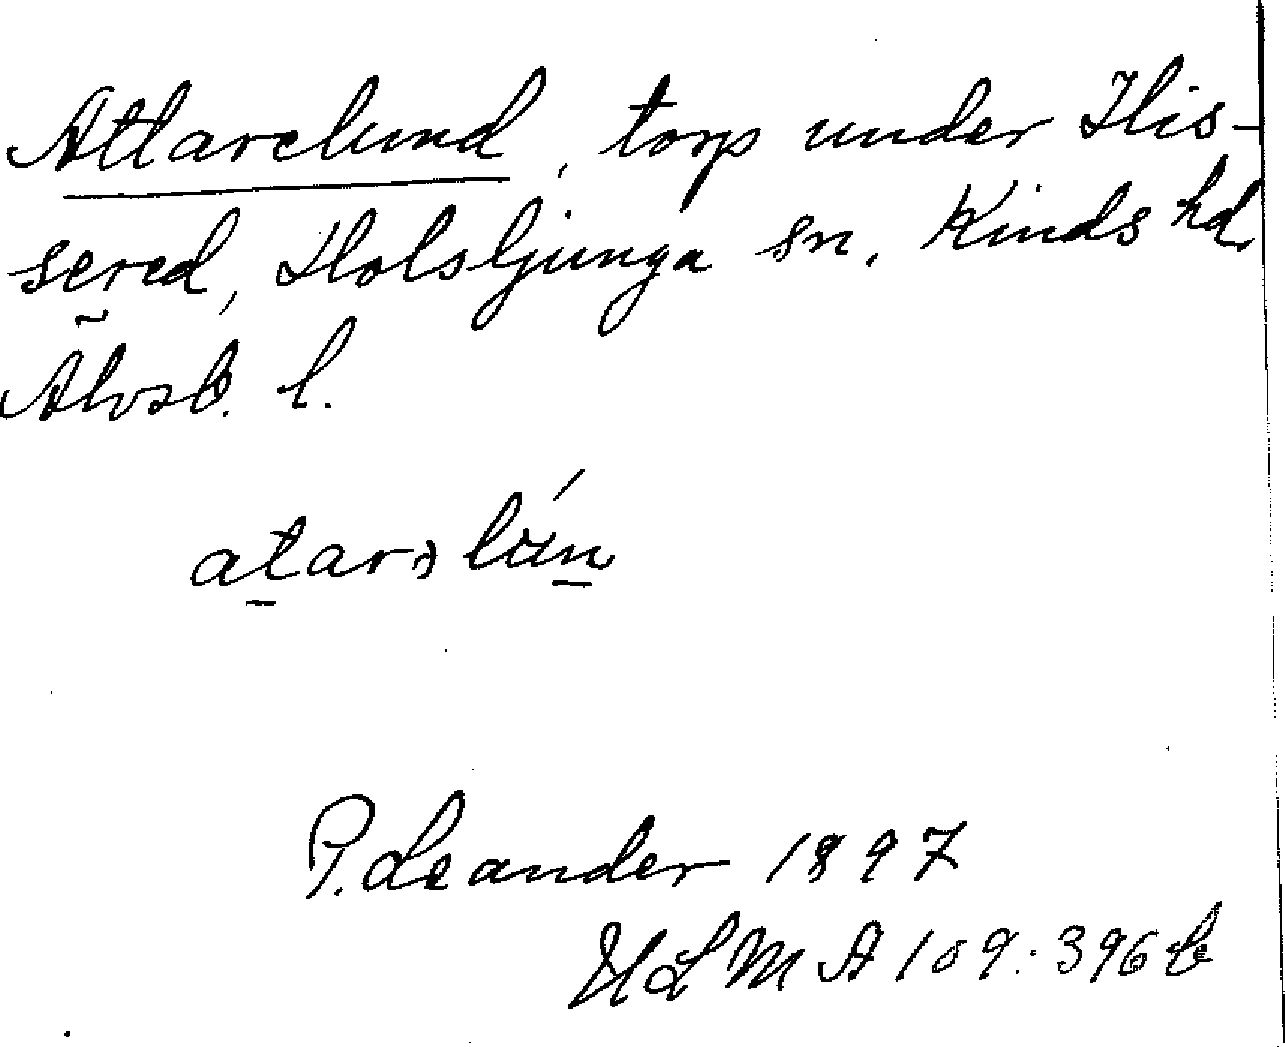 Attarelund, torp under His-
sered, Holsljunga sn, Kinds hd,
Älvsb. l.
P. Leander 1897
ULMA 109:396 b